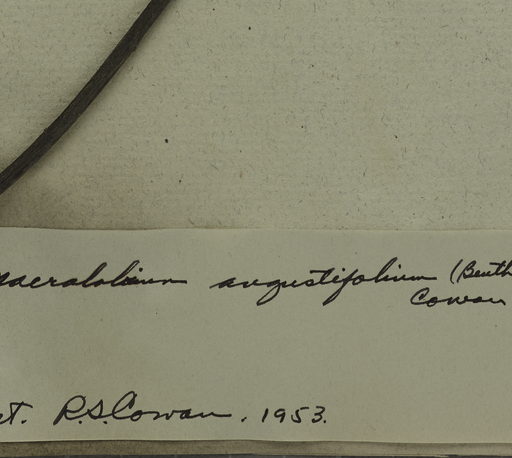 Macrolobium angustifolium (Benth
Cowan
et. R.S. Cowan. 1953.